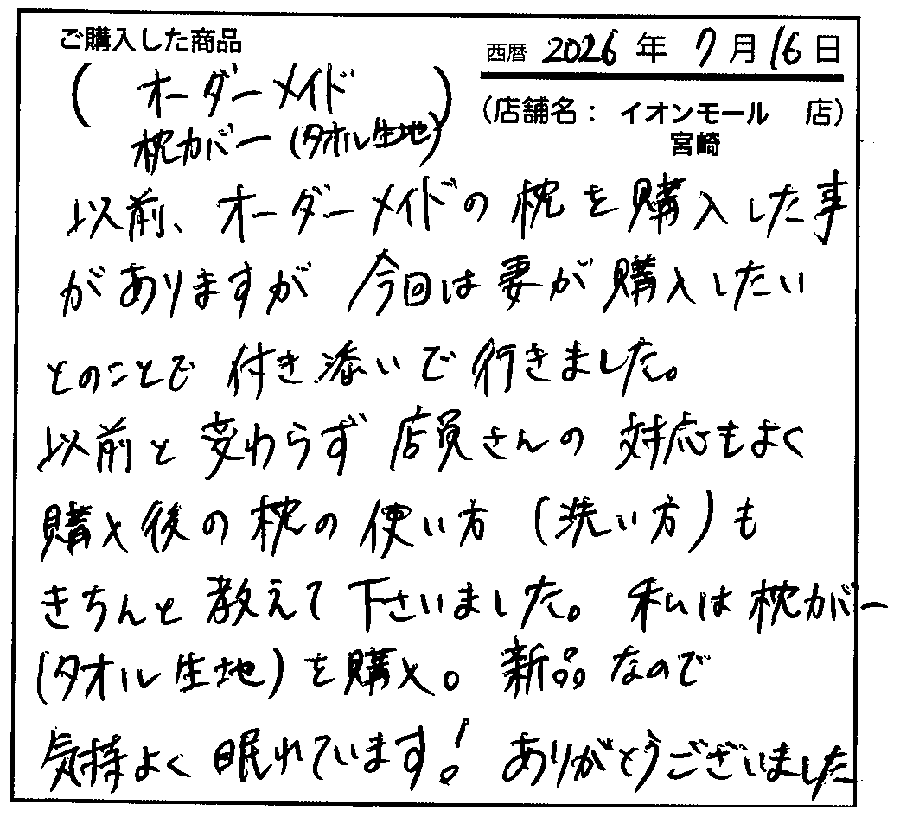 ご購入した商品
西暦 2026 年 7 月 16 日
( オーダーメイド
枕カバー (タオル生地) )
(店舗名： イオンモール 店)
宮崎
以前、オーダーメイドの枕を購入した事
がありますが 今回は妻が購入したい
とのことで 付き添いで行きました。
以前と変わらず 店員さんの対応もよく
購入後の枕の使い方 (洗い方)も
きちんと教えて下さいました。 私は枕カバー
(タオル生地)を購入。 新品なので
気持よく眠れています! ありがとうございました